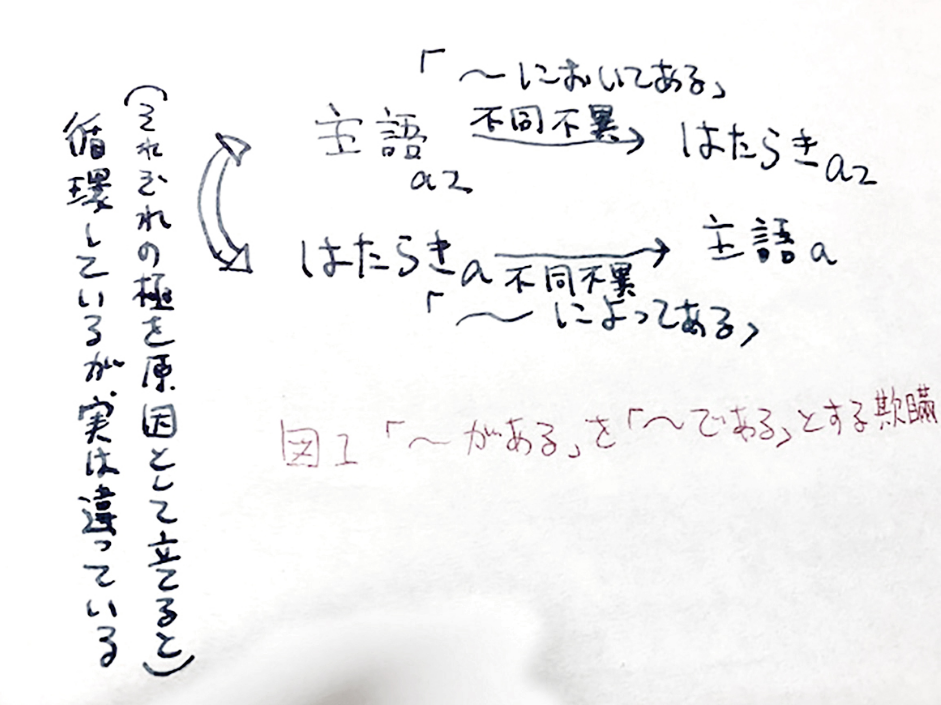 (それぞれの極を原因として立てると)
循環しているが、実は違っている
「～においてある」
主語a2 不同不異→ はたらきa2
はたらきa → 主語a
不同不異
「～によってある」
図1 「～がある」を「～である」とする欺瞞